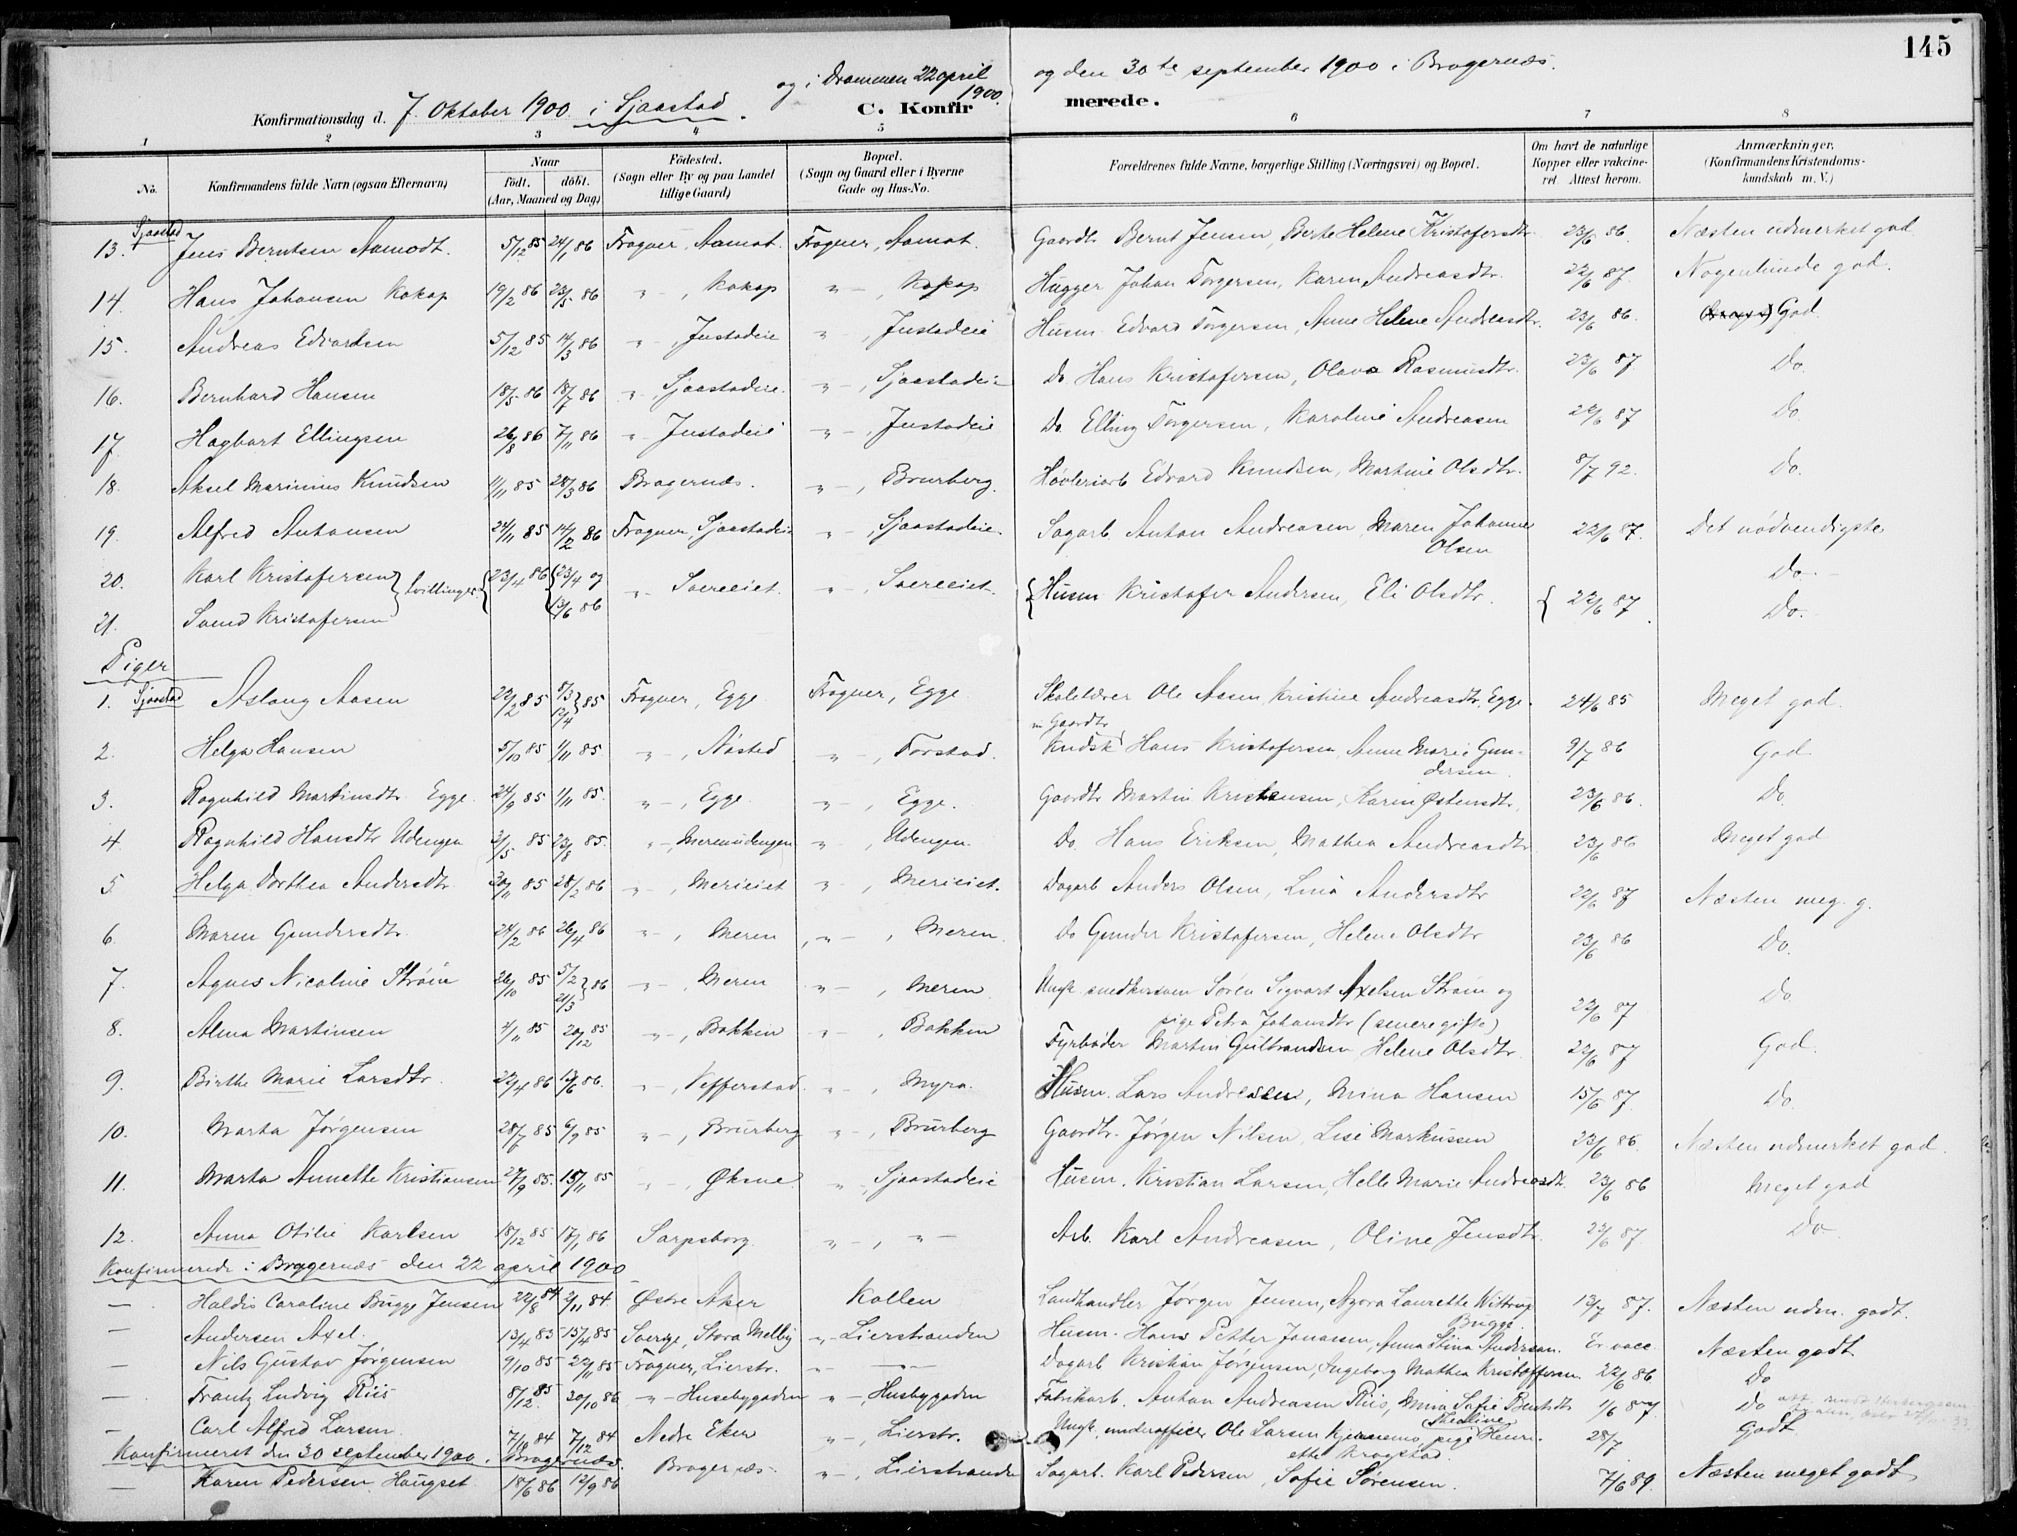 145
og i Drammen 22 april 1900
og den 30te september 1900 i Bragernæs.
Konfirmationsdag d. 7. Oktober 1900 i Sjaastad.
C. Konfirmerede.
1 2 3 4 5 6 7 8
No. Konfirmandens fulde Navn (ogsaa Efternavn) Naar født. døbt. (Aar, Maaned og Dag) Fødested. (Sogn eller By og paa Landet tillige Gaard) Bopæl. (Sogn og Gaard eller i Byerne Gade og Hus-No. Forældrenes fulde Navne, borgerlige Stilling (Næringsvei) og Bopæl. Om havt de naturlige Kopper eller vakcineret. Attest herom. Anmærkninger, (Konfirmandens Kristendomskundskab m. V.)
Sjaastad
13. Jens Berntsen Aamodt. 5/12 85 24/1 86 Frogner, Aamot. Frogner, Aamot. Gaardbr Bernt Jensen, Berte Helene Kristofersdtr. 23/6 86. Næsten udmerket god.
14. Hans Johansen Kokop 19/2 86 23/5 86 " – , Kokop " – , Kokop Hugger Johan Torgersen, Karen Andreasdtr. 22/6 87. Nogenlunde god.
15. Andreas Edvardsen 5/12 85 14/3 86 " – , Justadeie " – , Justadeie Husm. Edvard Torgersen, Anne Helene Andreasdtr. 23/6 86. God
16. Bernhard Hansen 18/5 86 18/7 86 " – , Sjaastadeie. " – , Sjaastadeie Do. Hans Kristofersen, Olava Rasmusdtr. 23/6 87. Do.
17. Hagbart Ellingsen 26/8 86 7/11 86 " – Justadeie " – , Justadeie Do. Elling Torgersen, Karoline Andreasen 22/6 87 Do
18. Aksel Marinius Knudsen 11/11 85 28/3 86 Bragernæs. " – , Brurberg. Høvleriarb Edvard Knudsen, Martine Olsdtr. 8/7 92. Do.
19. Alfred Antonsen 24/11 85 14/2 86 Frogner, Sjaastadeie " – , Sjaastadeie. Sagarb. Anton Andreasen, Maren Johanne Olsen 22/6 87. Det nødvendigste
20. Karl Kristofersen } tvillinger { 23/4 86 { 23/4 og 13/6 86 " – Soereeiet. " – , Soereeiet. { Husm Kristofer Andersen, Eli Olsdtr. { 22/6 87. Do. –
21. Svend Kristofersen Do.
Piger
1. Sjaastad Aslaug Aasen 22/2 85 8/3 12/4 } 85 Frogner, Egge Frogner, Egge. Skolelærer Ole Aasen, Kristine Andreasdtr, Egge. 24/6 85 Meget god.
2. Helga Hansen 5/10 85 1/11 85. " – , Nøsted " – , Torstad. Gaardbr Kudsk Hans Kristofersen, Anne Marie Gundersen. 9/7 86 God
3. Ragnhild Martinsdtr. Egge. 24/9 85 1/11 85. " – , Egge " – , Egge. Gaardbr Martin Kristensen, Karen Østensdtr. 23/6 86. Do.
4. Ragnhild Hansdtr Udengen 3/5 85 23/8 85. " – , Merenudengen " – , Udengen. Do. Hans Eriksen, Mathea Andreasdtr. 23/6 86 Meget god
5 Helga Dorthea Andersdtr 30/11 85 28/2 86 " – , Merieiet " – , Merieiet. Dagarb Anders Olsen, Lina Andersdtr 22/6 87 Næsten meg. g.
6. Maren Gundersdtr. 24/2 86 26/4 86 " – , Meren " – , Meren. Do Gunder Kristofersen, Helene Olsdtr 23/6 86 Do.
7. Agnes Nicoline Strøm 26/10 85 5/2 21/3 } 86 " – , Meren " – , Meren. Ungk. snedkersvein Søren Sigvart Axelsen Strøm og pige Petra Johansdtr (senere gifte) 22/6 87 Do
8. Alma Martinsen 4/11 85 20/12 85 " – , Bakken " – , Bakken Fyrbøder Martin Gulbrandsen, Helene Olsdtr. 22/6 87 God.
9. Birthe Marie Larsdtr. 22/4 86 13/6 86. " – , Vefferstad. " – , Myra. Husm. Lars Andreasen, Mina Hansen 15/6 87. Do.
10. Marta Jørgensen 28/7 85 6/9 85 " – , Brurberg " – , Brurberg Gaardbr. Jørgen Nilsen, Lise Markussen 23/6 86. Næsten udmerket god.
11. Marta Annette Kristiansen 27/9 85. 15/11 85 " – , Øksne " – , Sjaastadeie Husm. Kristian Larsen, Helle Marie Andreasdtr. 23/6 86 Meget god
12. Anna Otilie Karlsen 18/12 85 17/1 86 Sarpsborg. " – , " – Arb. Karl Andreasen, Oline Jensdtr. 22/6 87. Do
Konfirmerede i Bragernæs den 22 april 1900
– Haldis Caroline Bugge Jensen 22/8 84 2/11 84. Østre Aker Kollen Landhandler Jørgen Jensen, Agora Laurette Wittrup Bugge. 13/7 87. Næsten udm. godt.
– Andersen Axel. 13/4 85 15/4 85 Sverige, Stora Mellby " Lierstranden Husm. Hans Petter Jonassen, Anna Stina Andersen. Er vacc. Næsten godt
– Nils Gustav Jørgensen 9/10 85 22/11 85 Frogner, Lierstr. " – – " – Dagarb Kristian Jørgensen, Ingeborg Mathea Kristoffersen 22/6 86 Do
– Frantz Ludvig Riis 8/12 85 20/10 86 " – Husebygaden " – , Husbygaden Fabrikarb. Anton Andreasen Riis, Mina Sofie Berntsdtr 1/6 87. Do
– Carl Alfred Larsen 7/10 84 7/12 84 Nedre Eker " – , Lierstr. Ungk. underofficer Ole Larsen Kjennemo, pige Thealine Henriette Kragstad. 28/7 Godt
Konfirmeret den 30 september 1900. Bragernæs.
– Karen Pedersen Haugset 18/6 86 12/9 86 Bragernæs. " – , Lierstranden Sagarb. Karl Pedersen, Sofie Sørensen. 7/6 89. Næsten meget godt